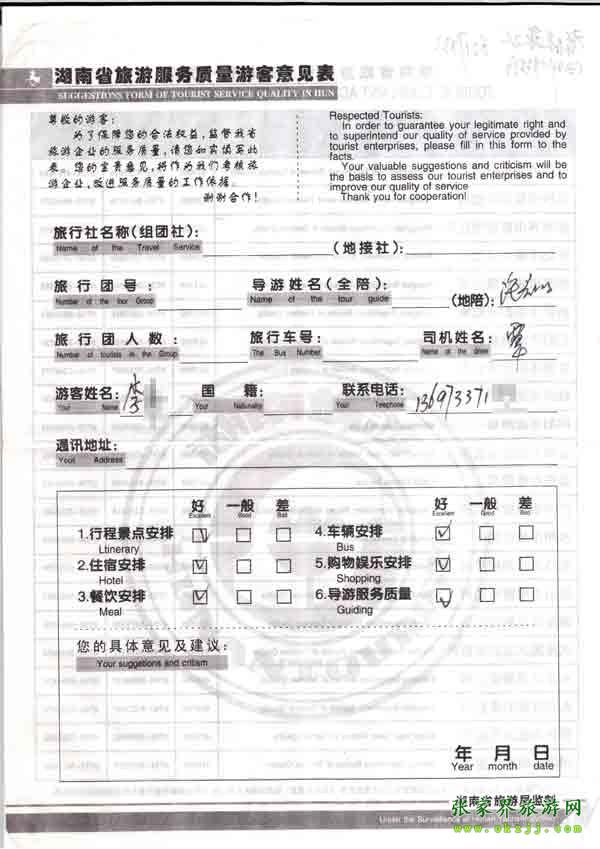 湖南省旅游服务质量游客意见表
SUGGESTIONS FORM OF TOURIST SERVICE QUALITY IN HUN
尊敬的游客:
为了保障您的合法权益,监督我省
旅游企业的服务质量,请您如实填写此
表。您的宝贵意见,将作为我们考核旅
游企业,改进服务质量的工作依据。
谢谢合作!
Respected Tourists:
In order to guarantee your legitimate right and
to superintend our quality of service provided by
tourist enterprises, please fill in this form to the
facts.
Your valuable suggestions and criticism will be
the basis to assess our tourist enterprises and to
improve our quality of service
Thank you for cooperation!
旅行社名称(组团社):
(地接社):
Name of the Travel Service
旅行团号:
导游姓名(全陪):
(地陪):
Number of the tour Group
Name of the tour guide
旅行团人数:
旅行车号:
司机姓名:
覃
Number of tourists in the Group
The Bus Number
Name of the driver
游客姓名:
国籍:
联系电话:
136973371
Your Name
Your Nationality
Your Telephone
通讯地址:
Your Address
好 一般 差
Excellent Good Bad
好 一般 差
Excellent Good Bad
1.行程景点安排
Ltinerary
4.车辆安排
Bus
2.住宿安排
Hotel
5.购物娱乐安排
Shopping
3.餐饮安排
Meal
6.导游服务质量
Guiding
您的具体意见及建议:
Your suggetions and critism
年 月 日
Year month date
湖南省旅游局监制
Under the Surveillance of Hunan
张家界旅游网
www.okzjj.com